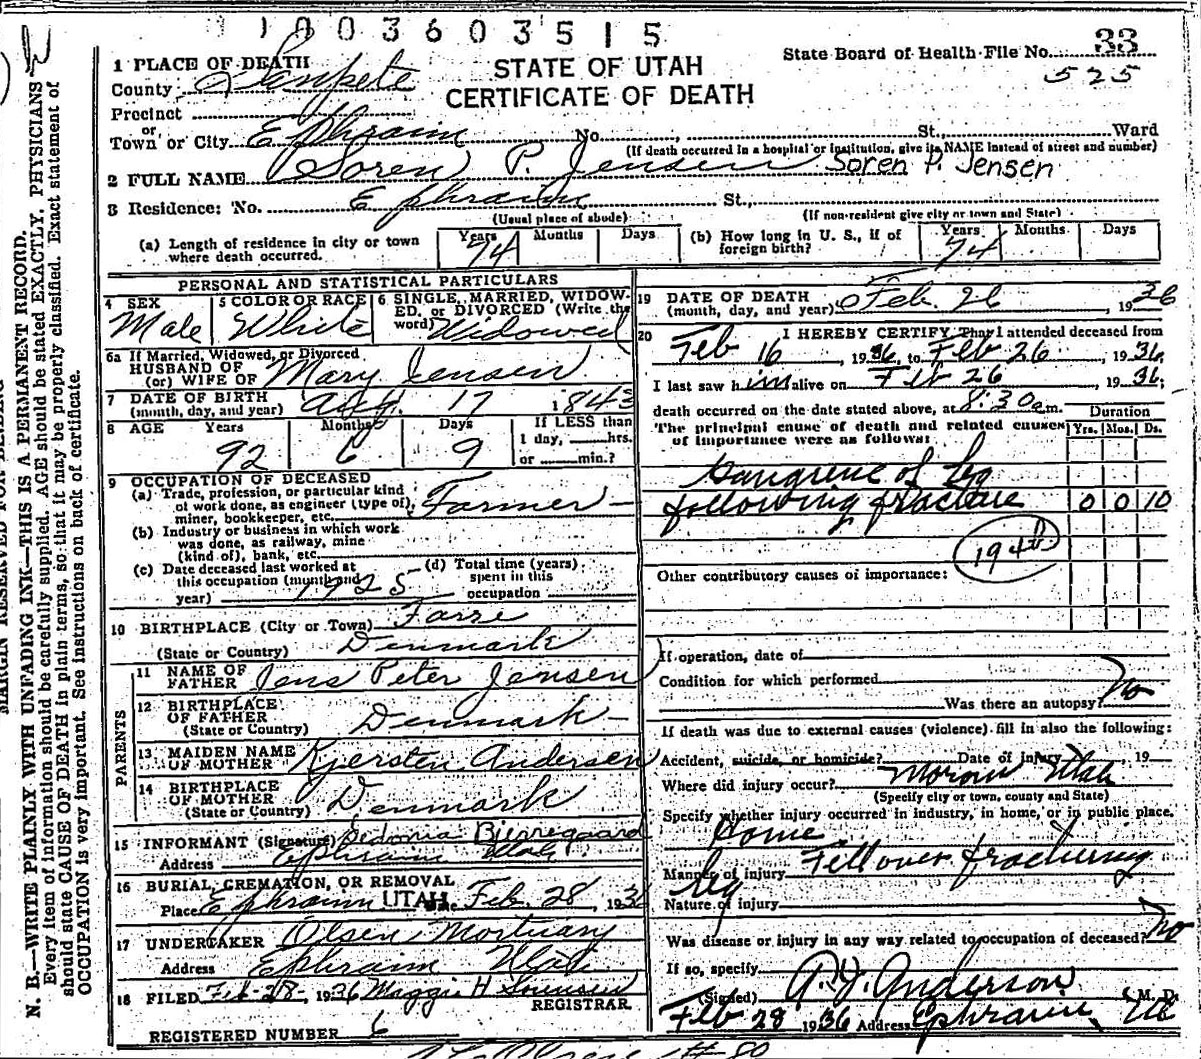 1003603515
State Board of Health File No. 33
525
1 PLACE OF DEATH
STATE OF UTAH
County Sanpete
CERTIFICATE OF DEATH
Precinct
or
Town or City Ephraim No. , St., Ward
(If death occurred in a hospital or institution, give its NAME instead of street and number)
2 FULL NAME Soren P. Jensen Soren P. Jensen
3 Residence: No. Ephraim St.,
(Usual place of abode) (If non-resident give city or town and State)
(a) Length of residence in city or town where death occurred. Years 74 Months Days
(b) How long in U. S., if of foreign birth? Years 74 Months Days
PERSONAL AND STATISTICAL PARTICULARS
4 SEX Male
5 COLOR OR RACE White
6 SINGLE, MARRIED, WIDOWED, or DIVORCED (Write the word) Widowed
6a If Married, Widowed, or Divorced
HUSBAND OF
(or) WIFE OF Mary Jensen
7 DATE OF BIRTH
(month, day, and year) Aug. 17 1843
8 AGE Years 92 Months 6 Days 9
If LESS than
1 day, hrs.
or min.?
9 OCCUPATION OF DECEASED
(a) Trade, profession, or particular kind
of work done, as engineer (type of),
miner, bookkeeper, etc. Farmer
(b) Industry or business in which work
was done, as railway, mine
(kind of), bank, etc.
(c) Date deceased last worked at
this occupation (month and
year) 1925
(d) Total time (years)
spent in this
occupation
10 BIRTHPLACE (City or Town) Farre
(State or Country) Denmark
PARENTS
11 NAME OF
FATHER Jens Peter Jensen
12 BIRTHPLACE
OF FATHER
(State or Country) Denmark
13 MAIDEN NAME
OF MOTHER Kjersten Andersen
14 BIRTHPLACE
OF MOTHER
(State or Country) Denmark
15 INFORMANT (Signature) Sedonia Bjerregaard
Address Ephraim Utah
16 BURIAL, CREMATION, OR REMOVAL
Place Ephraim UTAH Feb. 28, 1936
17 UNDERTAKER Olsen Mortuary
Address Ephraim Utah
18 FILED Feb-28-, 1936 Maggie H Sorensen
REGISTRAR
REGISTERED NUMBER 6
19 DATE OF DEATH
(month, day, and year) Feb. 26 1936
20 I HEREBY CERTIFY, That I attended deceased from
Feb 16, 1936, to Feb 26, 1936
I last saw him alive on Feb 26, 1936;
death occurred on the date stated above, at 8:30 a.m.
The principal cause of death and related causes
of importance were as follows:
Duration
Yrs. Mos. Ds.
Gangrene of Leg
following fracture 0 0 10
194th
Other contributory causes of importance:
If operation, date of
Condition for which performed
Was there an autopsy? No
If death was due to external causes (violence) fill in also the following:
Accident, suicide, or homicide? Date of injury , 19
Where did injury occur? Moroni Utah
(Specify city or town, county and State)
Specify whether injury occurred in industry, in home, or in public place.
Home
Manner of injury Fell over fracturing
leg
Nature of injury
Was disease or injury in any way related to occupation of deceased? No
If so, specify
(Signed) A. J. Anderson M. D.
Feb 28 1936 Address Ephraim, Ut
MARGIN RESERVED FOR BINDING
N. B.—WRITE PLAINLY WITH UNFADING INK—THIS IS A PERMANENT RECORD.
Every item of information should be carefully supplied. AGE should be stated EXACTLY. PHYSICIANS
should state CAUSE OF DEATH in plain terms, so that it may be properly classified. Exact statement of
OCCUPATION is very important. See instructions on back of certificate.